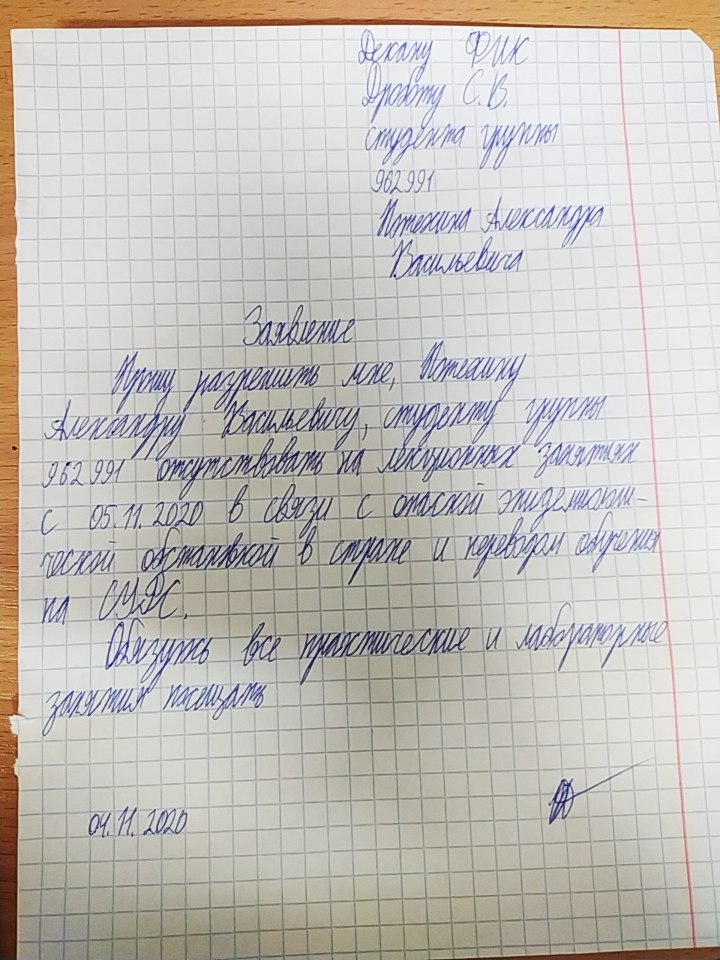 Декану ФИК
Дроботу С.В.
студента группы
962991
Потехина Александра
Васильевича
Заявление
Прошу разрешить мне, Потехину
Александру Васильевичу, студенту группы
962991 отсутствовать на лекционных занятиях
с 05.11.2020 в связи с опасной эпидемиологи-
ческой обстановкой в стране и переводом обучения
на
Обязуюсь все практические и лабораторные
занятия посещать
04.11.2020